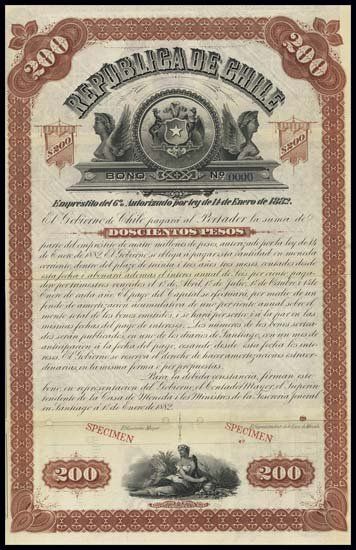 200 200
REPÚBLICA DE CHILE
$200 $200
BONO Nº 0000
Empréstito del 6% Autorizado por ley de 14 de Enero de 1882.
El Gobierno de Chile pagará al Portador la suma de
DOSCIENTOS PESOS
parte del empréstito de cuatro millones de pesos, autorizado por la ley de 14
de Enero de 1882. El Gobierno se obliga a pagar esta cantidad en moneda
corriente dentro del plazo de treinta i tres años tres meses, contados desde
esta fecha i abonará además el interés anual de seis por ciento, paga-
dero por trimestres vencidos el 1º de Abril, 1º de Julio, 1º de Octubre i 1º de
Enero de cada año. El pago del Capital se efectuará, por medio de un
fondo de amortización acumulativa de uno por ciento anual sobre el
monto total de los bonos emitidos, i se hará por sorteo i a la par en las
mismas fechas del pago de intereses. Los números de los bonos sortea-
dos serán publicados, en uno de los diarios de Santiago, con un mes de
anticipación a la fecha del pago, cesando desde esta fecha los inte-
reses. El Gobierno se reserva el derecho de hacer amortizaciones estraor-
dinarias, en la misma forma i por propuestas.
Para la debida constancia, firman este
bono, en representación del Gobierno, el Contador Mayor, el Superin-
tendente de la Casa de Moneda i los Ministros de la Tesorería Jeneral
en Santiago á 1º de Enero de 1882.
El Contador Mayor El Superintendente de la Casa de Moneda
SPECIMEN SPECIMEN
200 200